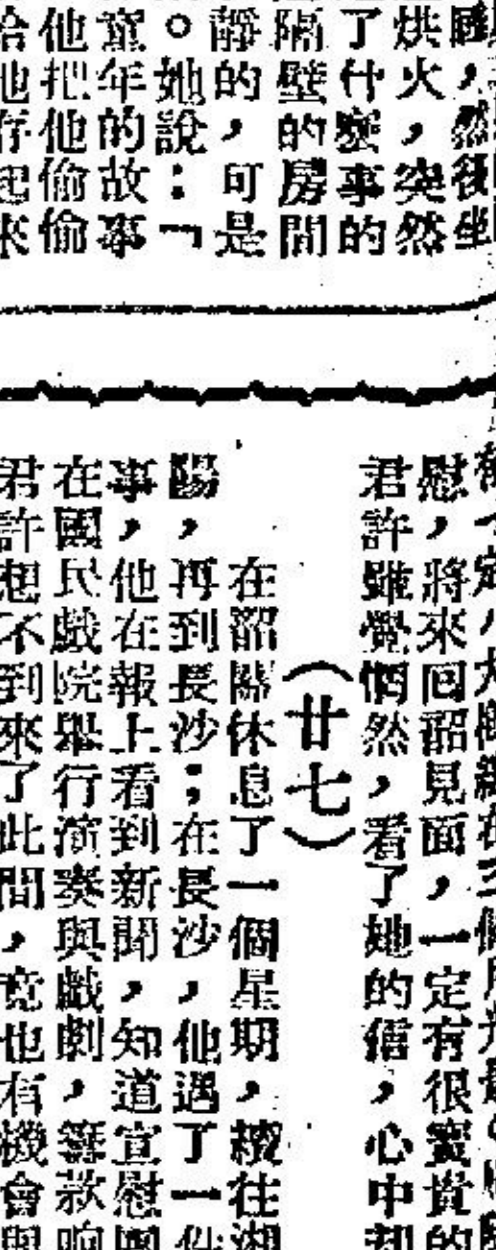 然後坐
烘火，突然
了什麽事的
隔壁的房間
靜的，可是
。她說：「
年的故事
他把他偷偷
慰，將來回韶見面，一定有很寳貴的
君許雖覺惘然，看了她的信，心中却
（廿七）
在韶關休息了一個星期，續往湘
陽，再到長沙；在長沙，他遇了一件
事，他在報上看到新聞，知道宣慰團
在國民戲院舉行演奏與戲劇，籌款响
君許想不到來了此間，竟也有機會與